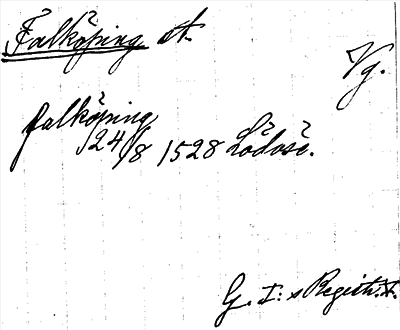 Falköping st.
Vg.
falköping
24/8 1528 Lödöse.
G. I: s Registr.